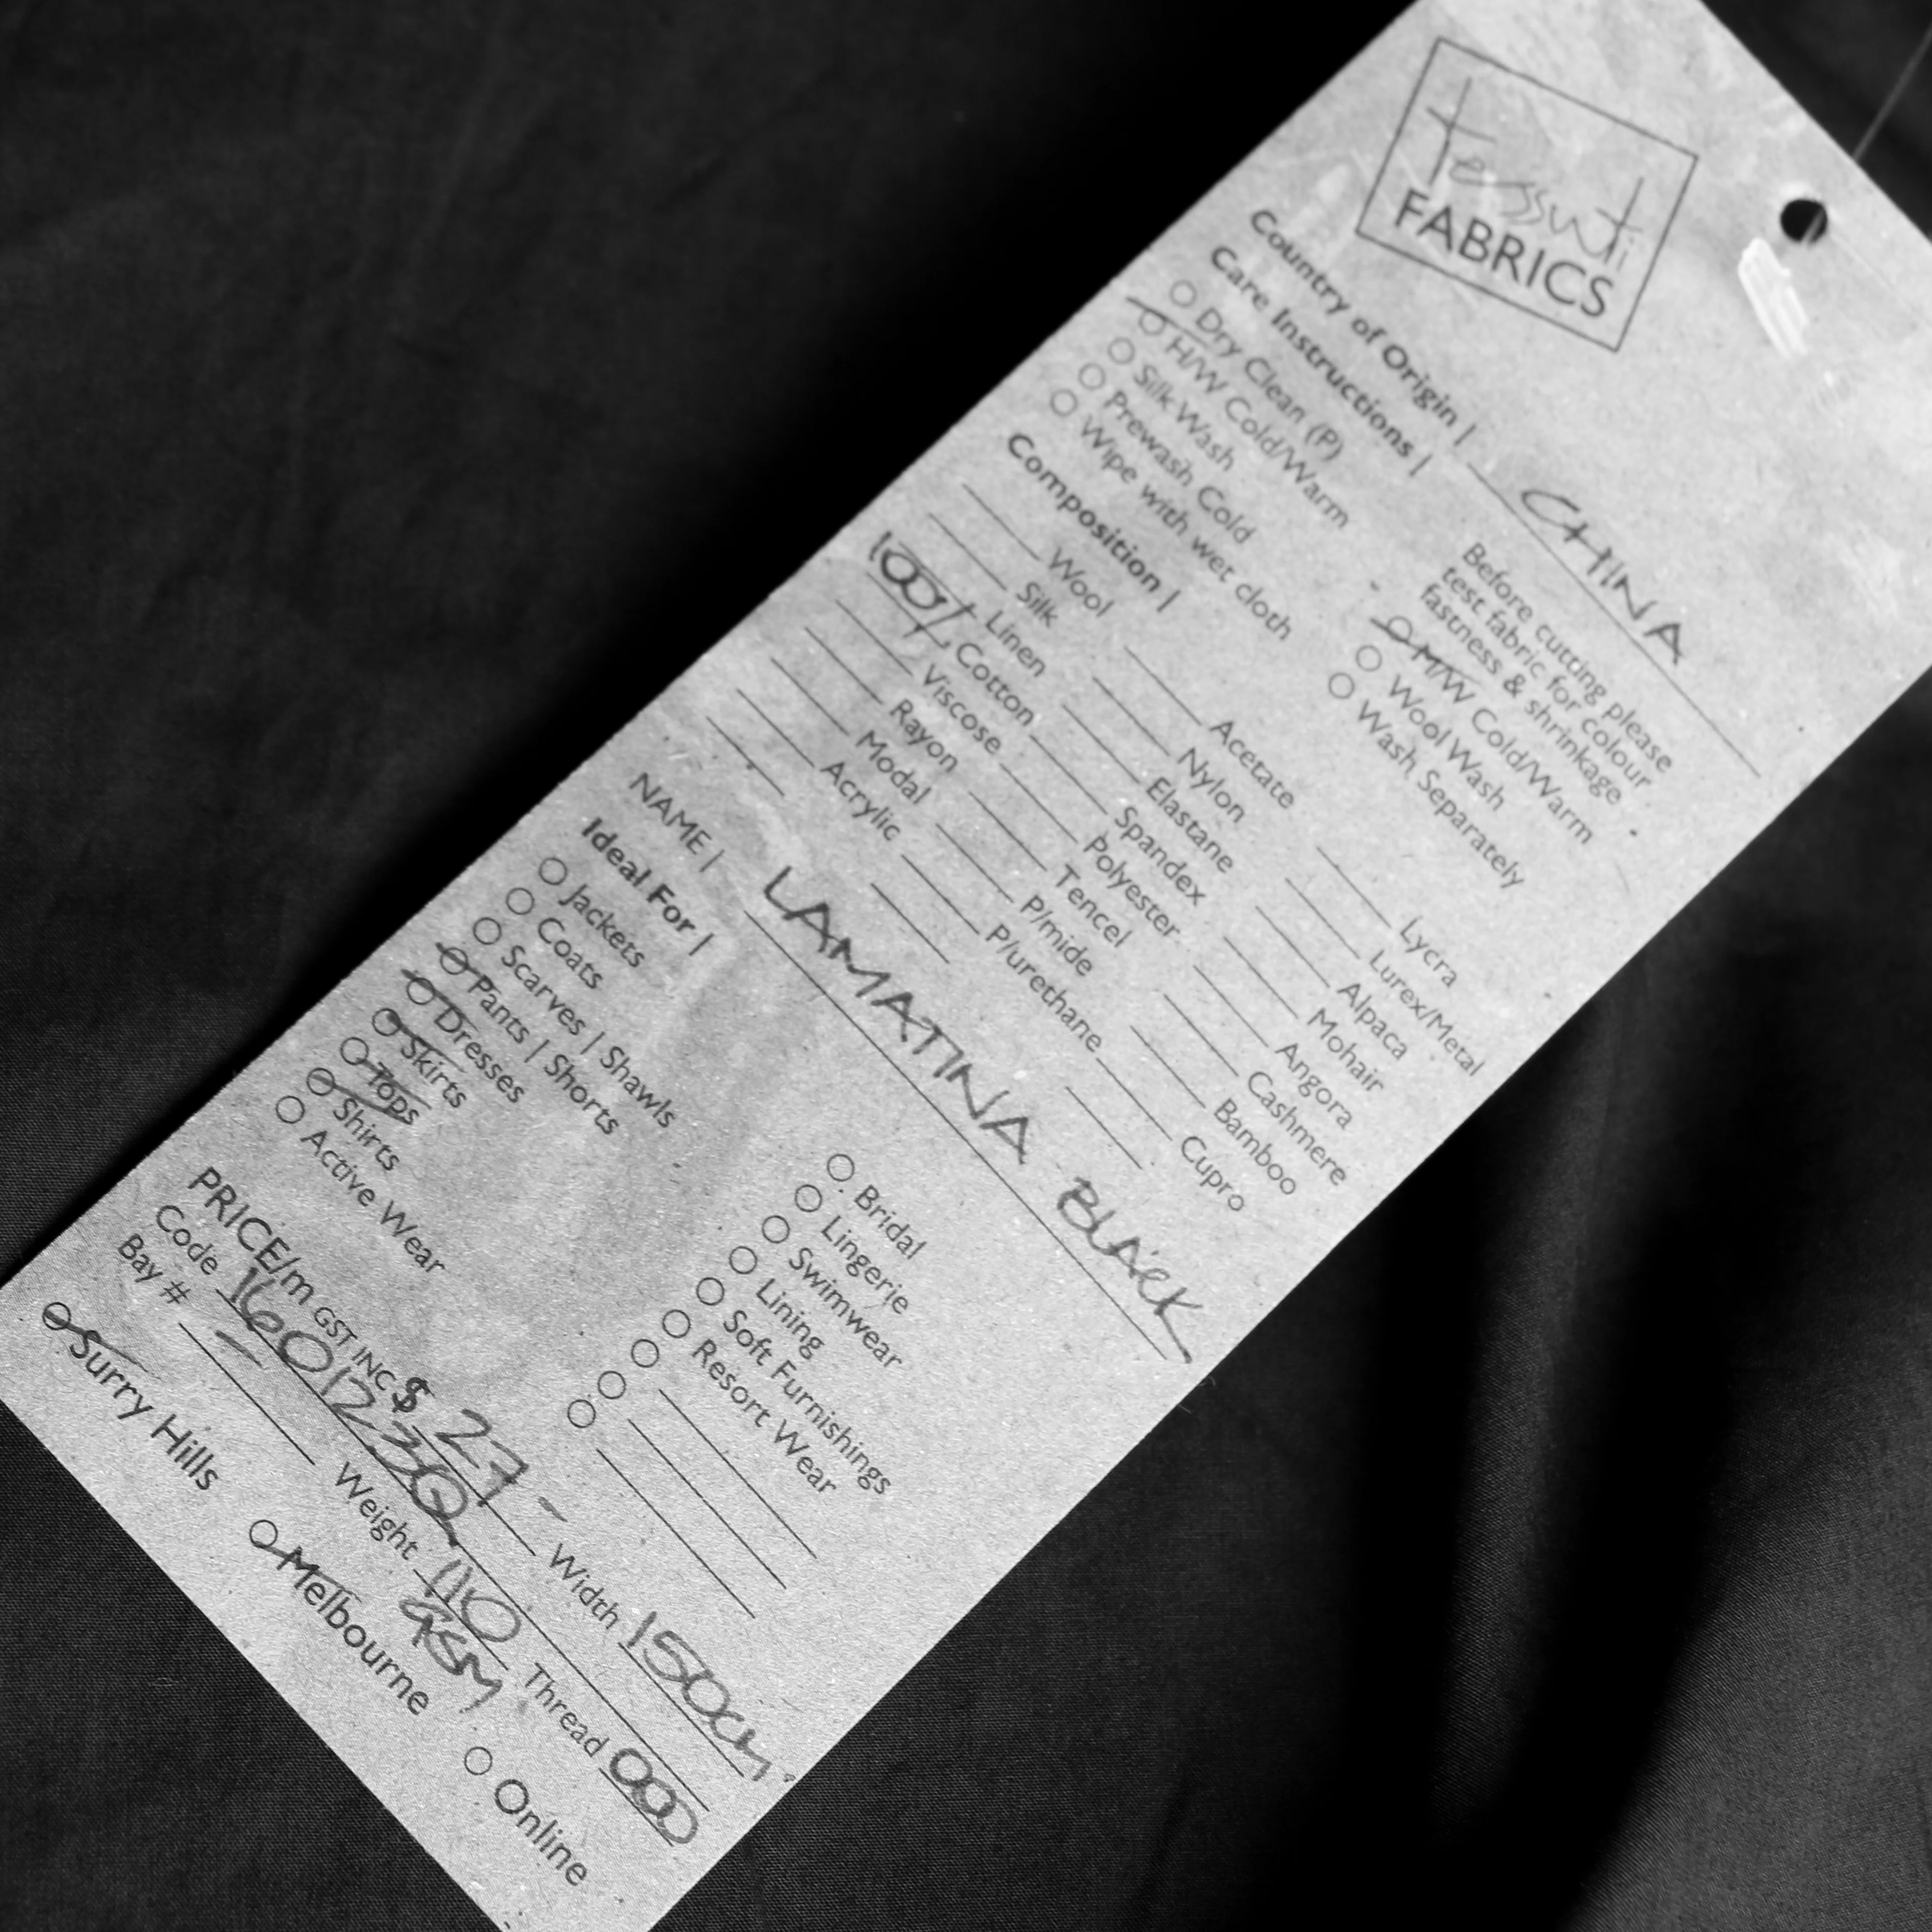 tessuti
FABRICS
Country of Origin | CHINA
Care Instructions |
Before cutting please
test fabric for colour
fastness & shrinkage
Dry Clean (P)
H/W Cold/Warm
Silk Wash
Prewash Cold
Wipe with wet cloth
M/W Cold/Warm
Wool Wash
Wash Separately
Composition |
Wool
Silk
Linen
100% Cotton
Viscose
Rayon
Modal
Acrylic
Acetate
Nylon
Elastane
Spandex
Polyester
Tencel
P/mide
P/urethane
Lycra
Lurex/Metal
Alpaca
Mohair
Angora
Cashmere
Bamboo
Cupro
NAME | LAMATINA BLACK
Ideal For |
Jackets
Coats
Scarves | Shawls
Pants | Shorts
Dresses
Skirts
Tops
Shirts
Active Wear
Bridal
Lingerie
Swimwear
Lining
Soft Furnishings
Resort Wear
PRICE/m GST INC $ 27 - Width 150cm
Code 1601230 Thread 000
Bay # - Weight 110 GSM
Surry Hills Melbourne Online